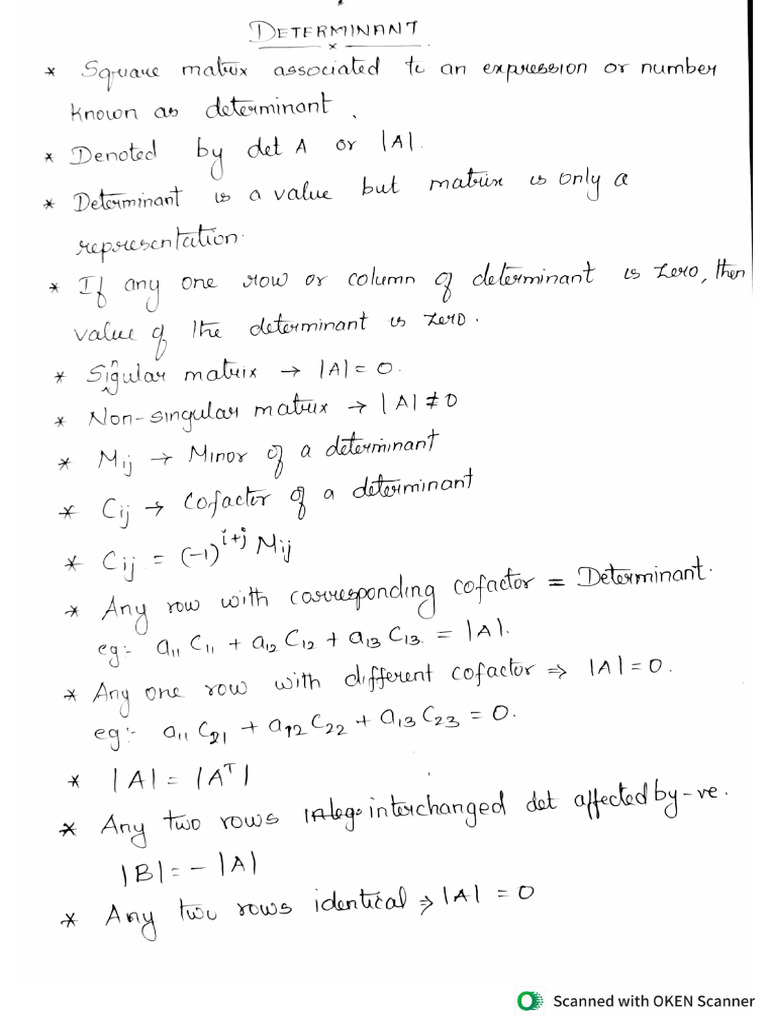 DETERMINANT
* Square matrix associated to an expression or number
known as determinant.
* Denoted by det A or |A|.
* Determinant is a value but matrix is only a
representation.
* If any one row or column of determinant is zero, then
value of the determinant is zero.
* Singular matrix → |A| = 0.
* Non-singular matrix → |A| ≠ 0
* Mij → Minor of a determinant
* Cij → Cofactor of a determinant
* Cij = (-1)^{i+j} Mij
* Any row with corresponding cofactor = Determinant.
eg:- a₁₁ C₁₁ + a₁₂ C₁₂ + a₁₃ C₁₃ = |A|.
* Any one row with different cofactor ⇒ |A| = 0.
eg:- a₁₁ C₂₁ + a₁₂ C₂₂ + a₁₃ C₂₃ = 0.
* |A| = |Aᵀ|
* Any two rows interchanged det affected by -ve.
|B| = - |A|
* Any two rows identical ⇒ |A| = 0
Scanned with OKEN Scanner